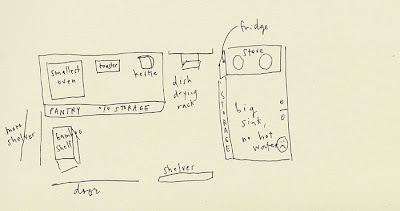 fridge
stove
smallest
oven
toaster
kettle
dish
drying
rack
PANTRY
STORAGE
STORAGE
big
sink,
no hot
water
more
shelves
bamboo
shelf
door
shelves